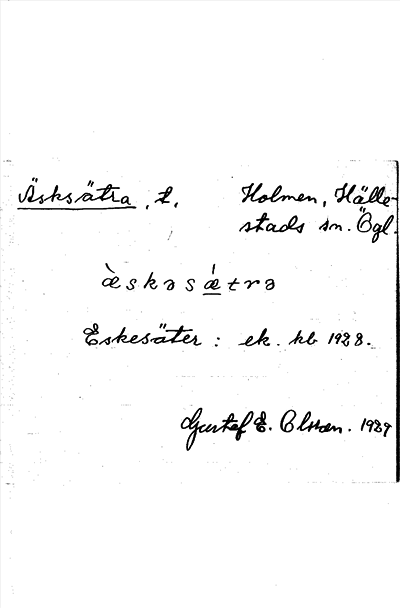 Äsksätra, t. Holmen, Hälle-
stads sn. Ögl.
æ̀skəsǽtrə
Eskesäter: ek. kb 1928.
Gustaf E. Olsson. 1929